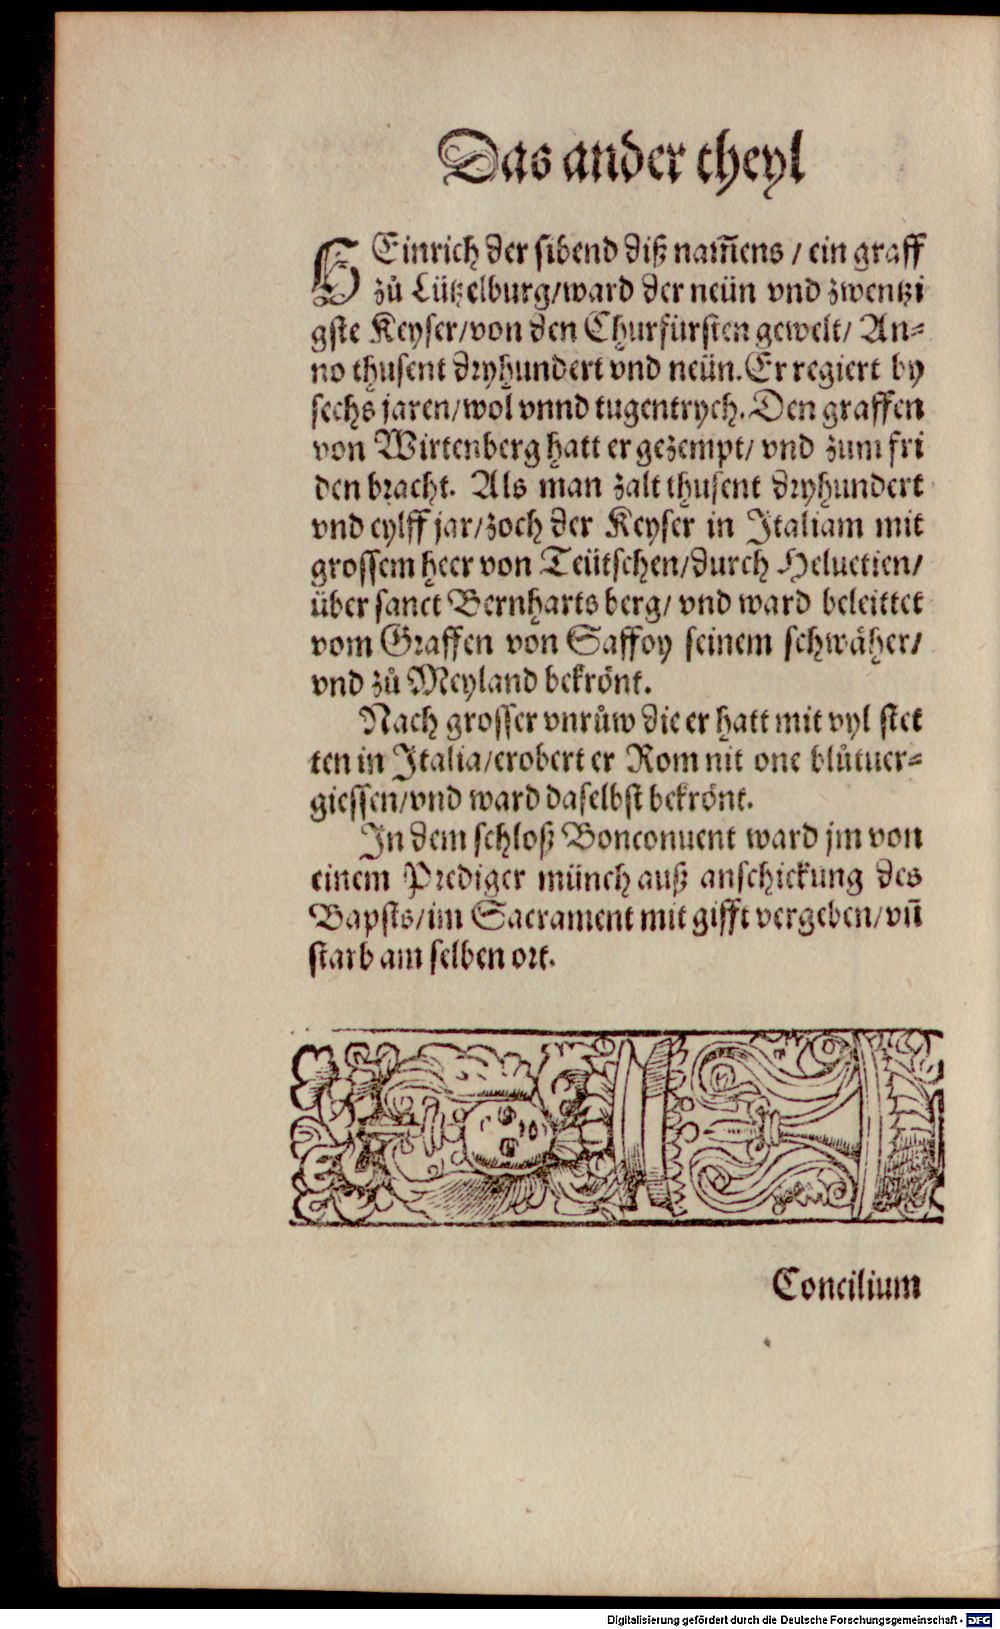 Das ander theyl
HEinrich der sibend diß nam̃ens / ein graff
zů Lützelburg/ward der neün vnd zwentzi
gste Keyser/von den Churfürsten gewelt/ An-
no thusent dryhundert vnd neün. Er regiert by
sechs jaren/wol vnnd tugentrych. Den graffen
von Wirtenberg hatt er gezempt/ vnd zum fri
den bracht. Als man zalt thusent dryhundert
vnd eylff jar/zoch der Keyser in Italiam mit
grossem heer von Teütschen/durch Heluetien/
über sanct Bernharts berg/ vnd ward beleittet
vom Graffen von Saffoy seinem schwäher/
vnd zů Meyland bekrönt.
Nach grosser vnrůw die er hatt mit vyl stet
ten in Italia/erobert er Rom nit one blůtuer-
giessen/vnd ward daselbst bekrönt.
In dem schloß Bonconuent ward jm von
einem Prediger münch auß anschickung des
Bapsts/im Sacrament mit gifft vergeben/vñ
starb am selben ort.
Concilium
Digitalisierung gefördert durch die Deutsche Forschungsgemeinschaft - DFG